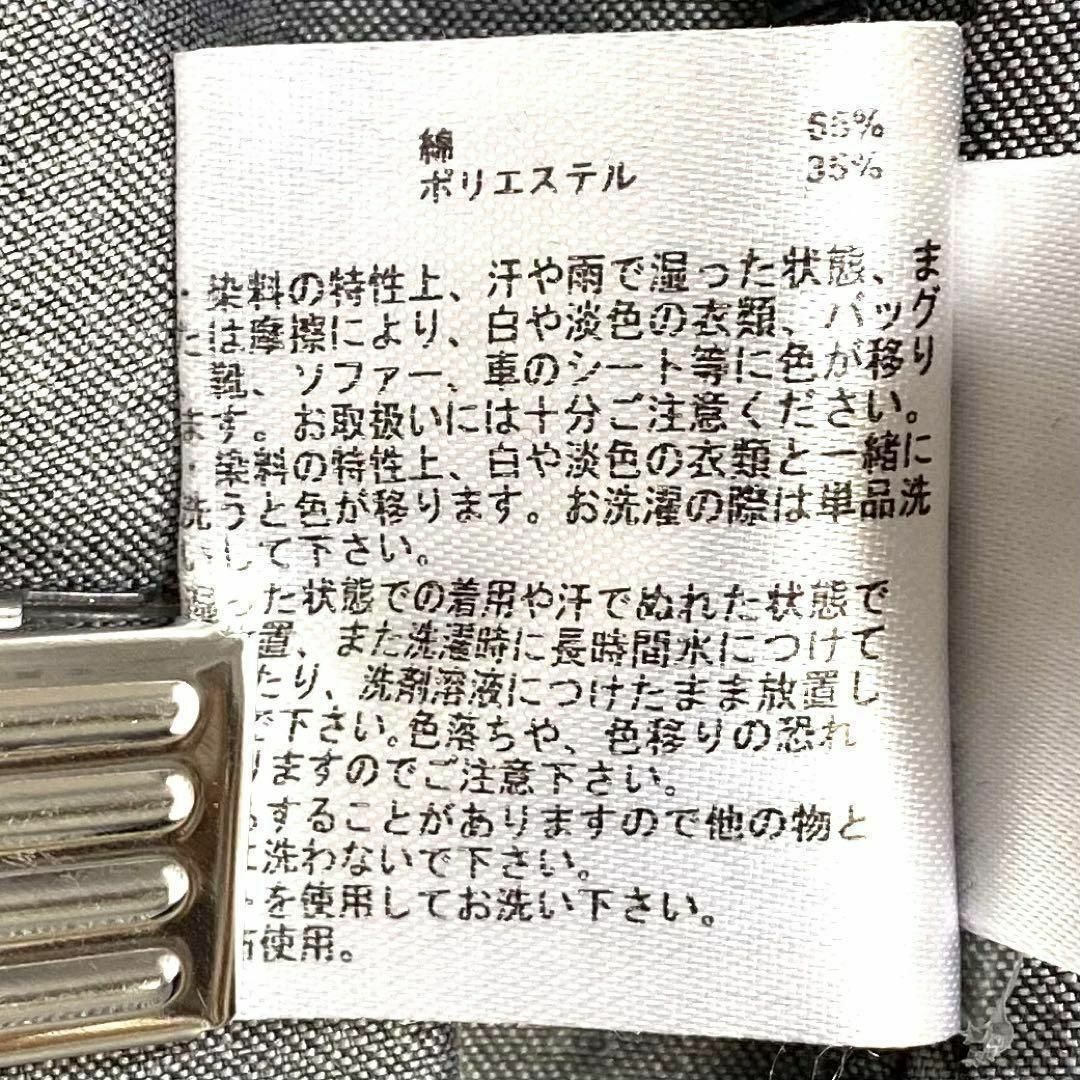 綿 65%
ポリエステル 35%
・染料の特性上、汗や雨で湿った状態、ま
たは摩擦により、白や淡色の衣類、バッグ
靴、ソファー、車のシート等に色が移り
ます。お取扱いには十分ご注意ください。
・染料の特性上、白や淡色の衣類と一緒に
洗うと色が移ります。お洗濯の際は単品洗
いして下さい。
った状態での着用や汗でぬれた状態で
置、また洗濯時に長時間水につけて
たり、洗剤溶液につけたまま放置し
で下さい。色落ちや、色移りの恐れ
りますのでご注意下さい。
することがありますので他の物と
に洗わないで下さい。
トを使用してお洗い下さい。
使用。